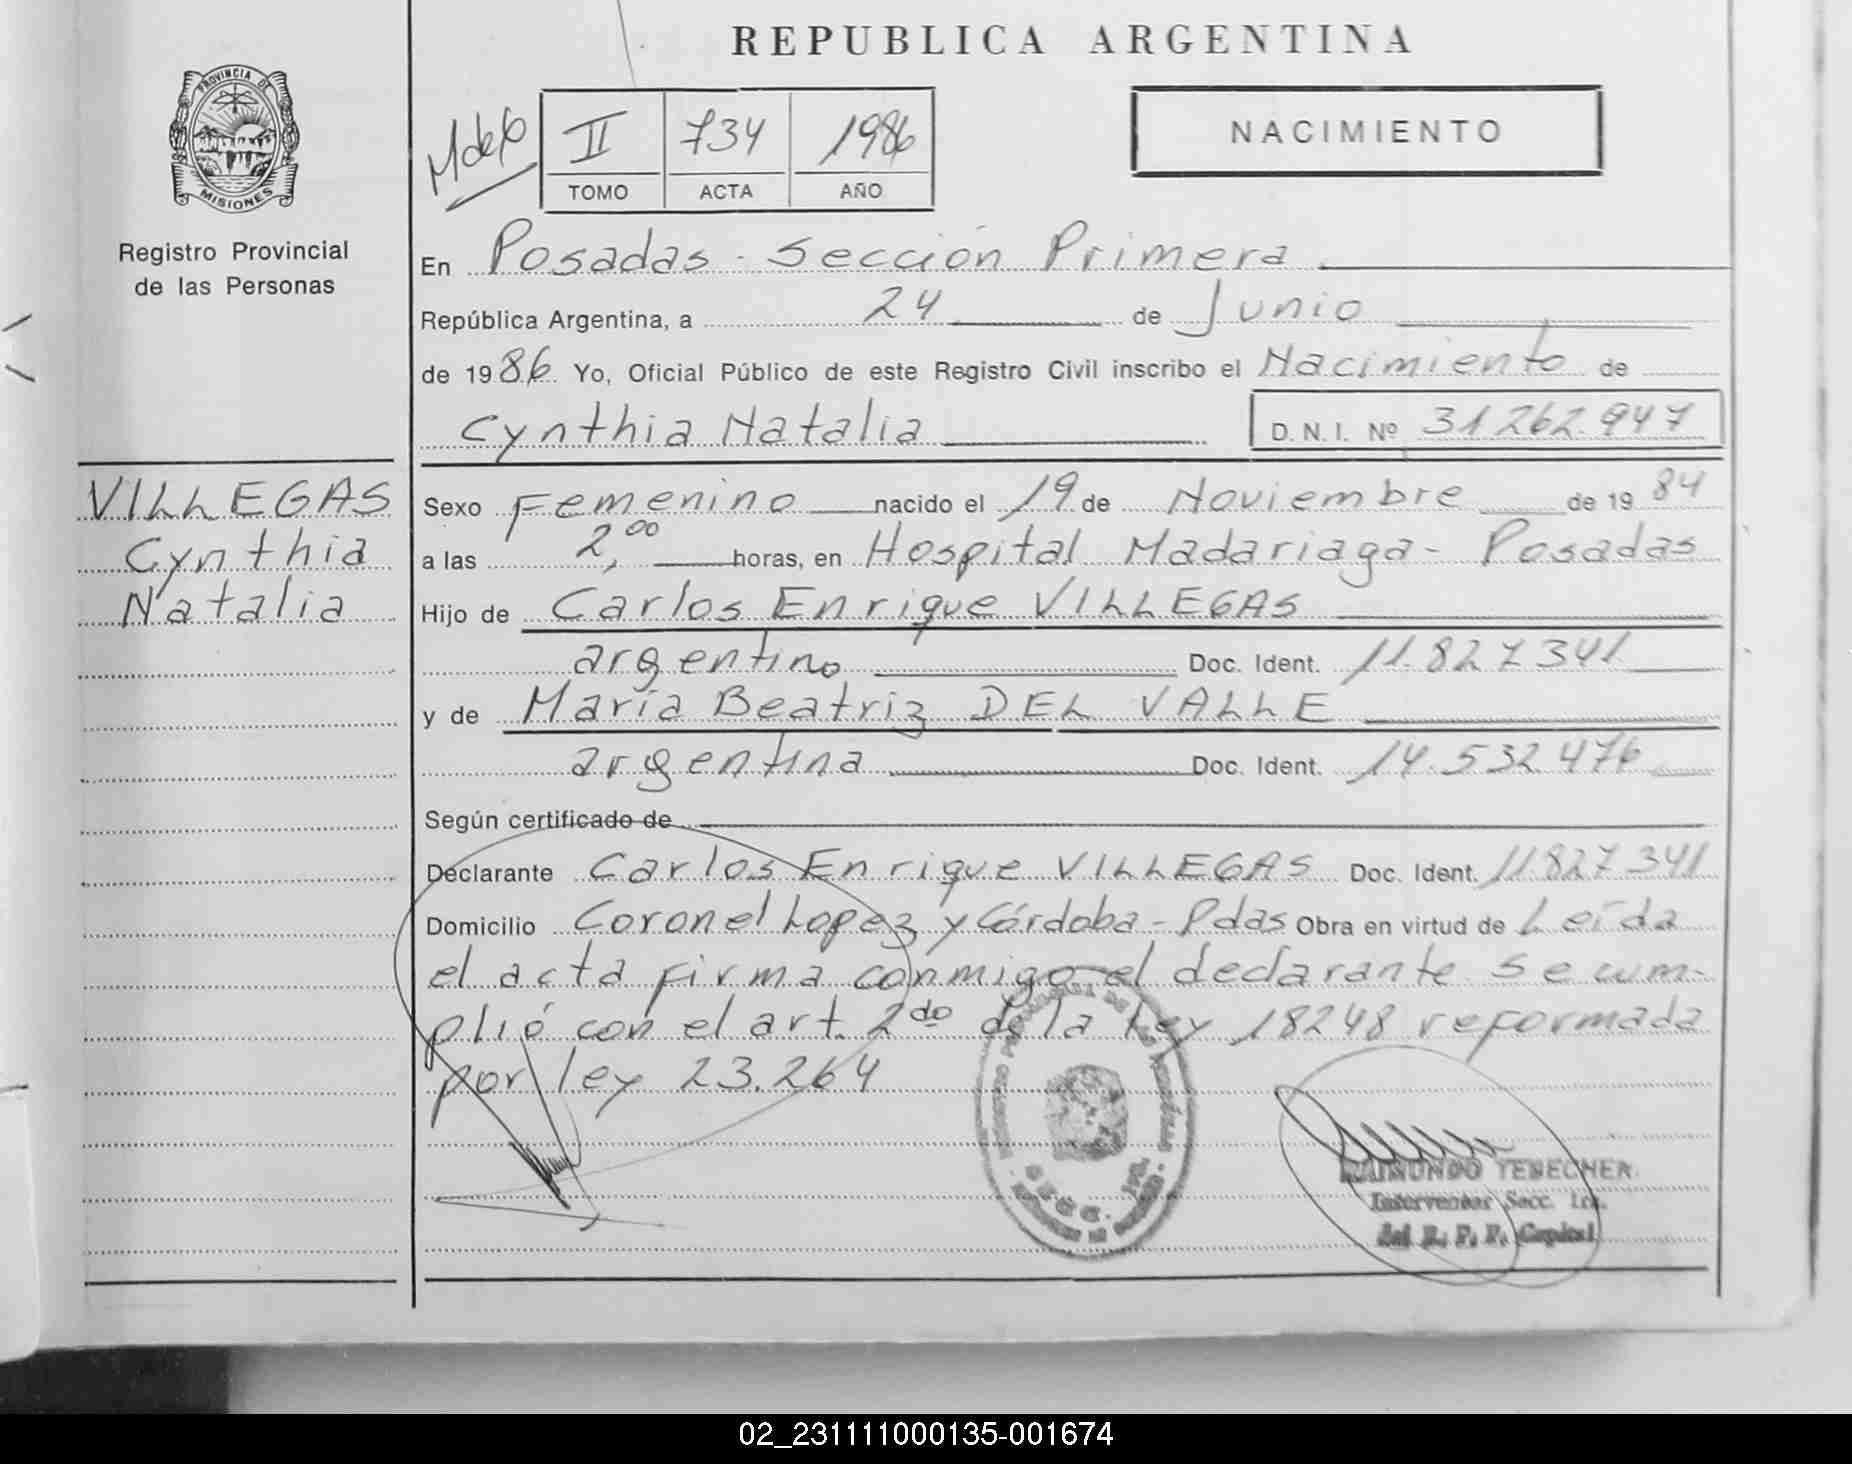 REPUBLICA ARGENTINA
PROVINCIA DE
MISIONES
Registro Provincial
de las Personas
II 734 1986
TOMO ACTA AÑO
NACIMIENTO
En Posadas - Sección Primera
República Argentina, a 24 de Junio
de 1986 Yo, Oficial Público de este Registro Civil inscribo el Nacimiento de
Cynthia Natalia D. N. I. Nº 31.262.947
VILLEGAS
Cynthia
Natalia
Sexo Femenino nacido el 19 de Noviembre de 19 84
a las 2,00 horas, en Hospital Madariaga - Posadas
Hijo de Carlos Enrique VILLEGAS
argentino Doc. Ident. 11.827.341
y de María Beatriz DEL VALLE
argentina Doc. Ident. 14.532.476
Según certificado de
Declarante Carlos Enrique VILLEGAS Doc. Ident. 11.827.341
Domicilio Coronel Lopez y Córdoba - Pdas Obra en virtud de Leída
el acta firma conmigo el declarante se cum-
plió con el art. 2do de la Ley 18248 reformada
por ley 23.264
RAIMUNDO TEBECHER
Interventor Secc. 1ra.
del R. P. P. Capital
02_231111000135-001674